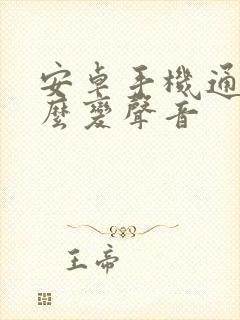 安卓手機通
麼變聲音
王帝